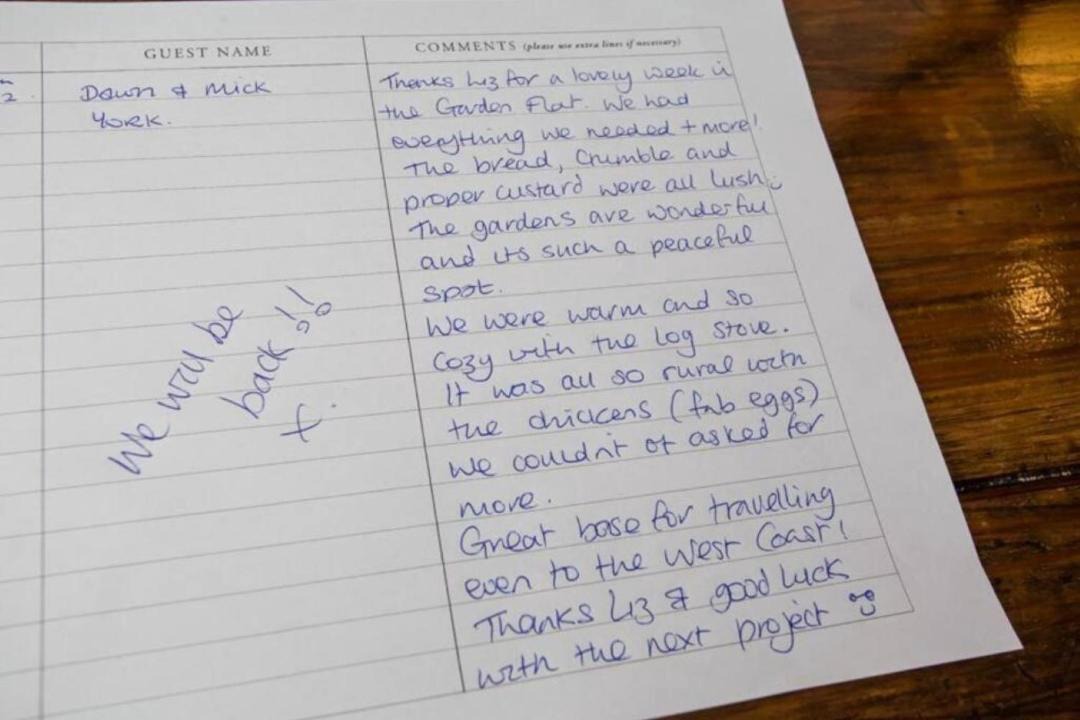 GUEST NAME
COMMENTS (please use extra lines if necessary)
2.
Dawn & Mick
York.
Thanks Liz for a lovely week in
the Garden Flat. We had
everything we needed + more!
The bread, Crumble and
proper custard were all lush
The gardens are wonderful
and its such a peaceful
spot.
We were warm and so
Cozy with the log stove.
It was all so rural with
the chickens (fab eggs)
we couldn't of asked for
more.
Great base for travelling
even to the West Coast!
Thanks Liz & good luck
with the next project
We will be
back !!